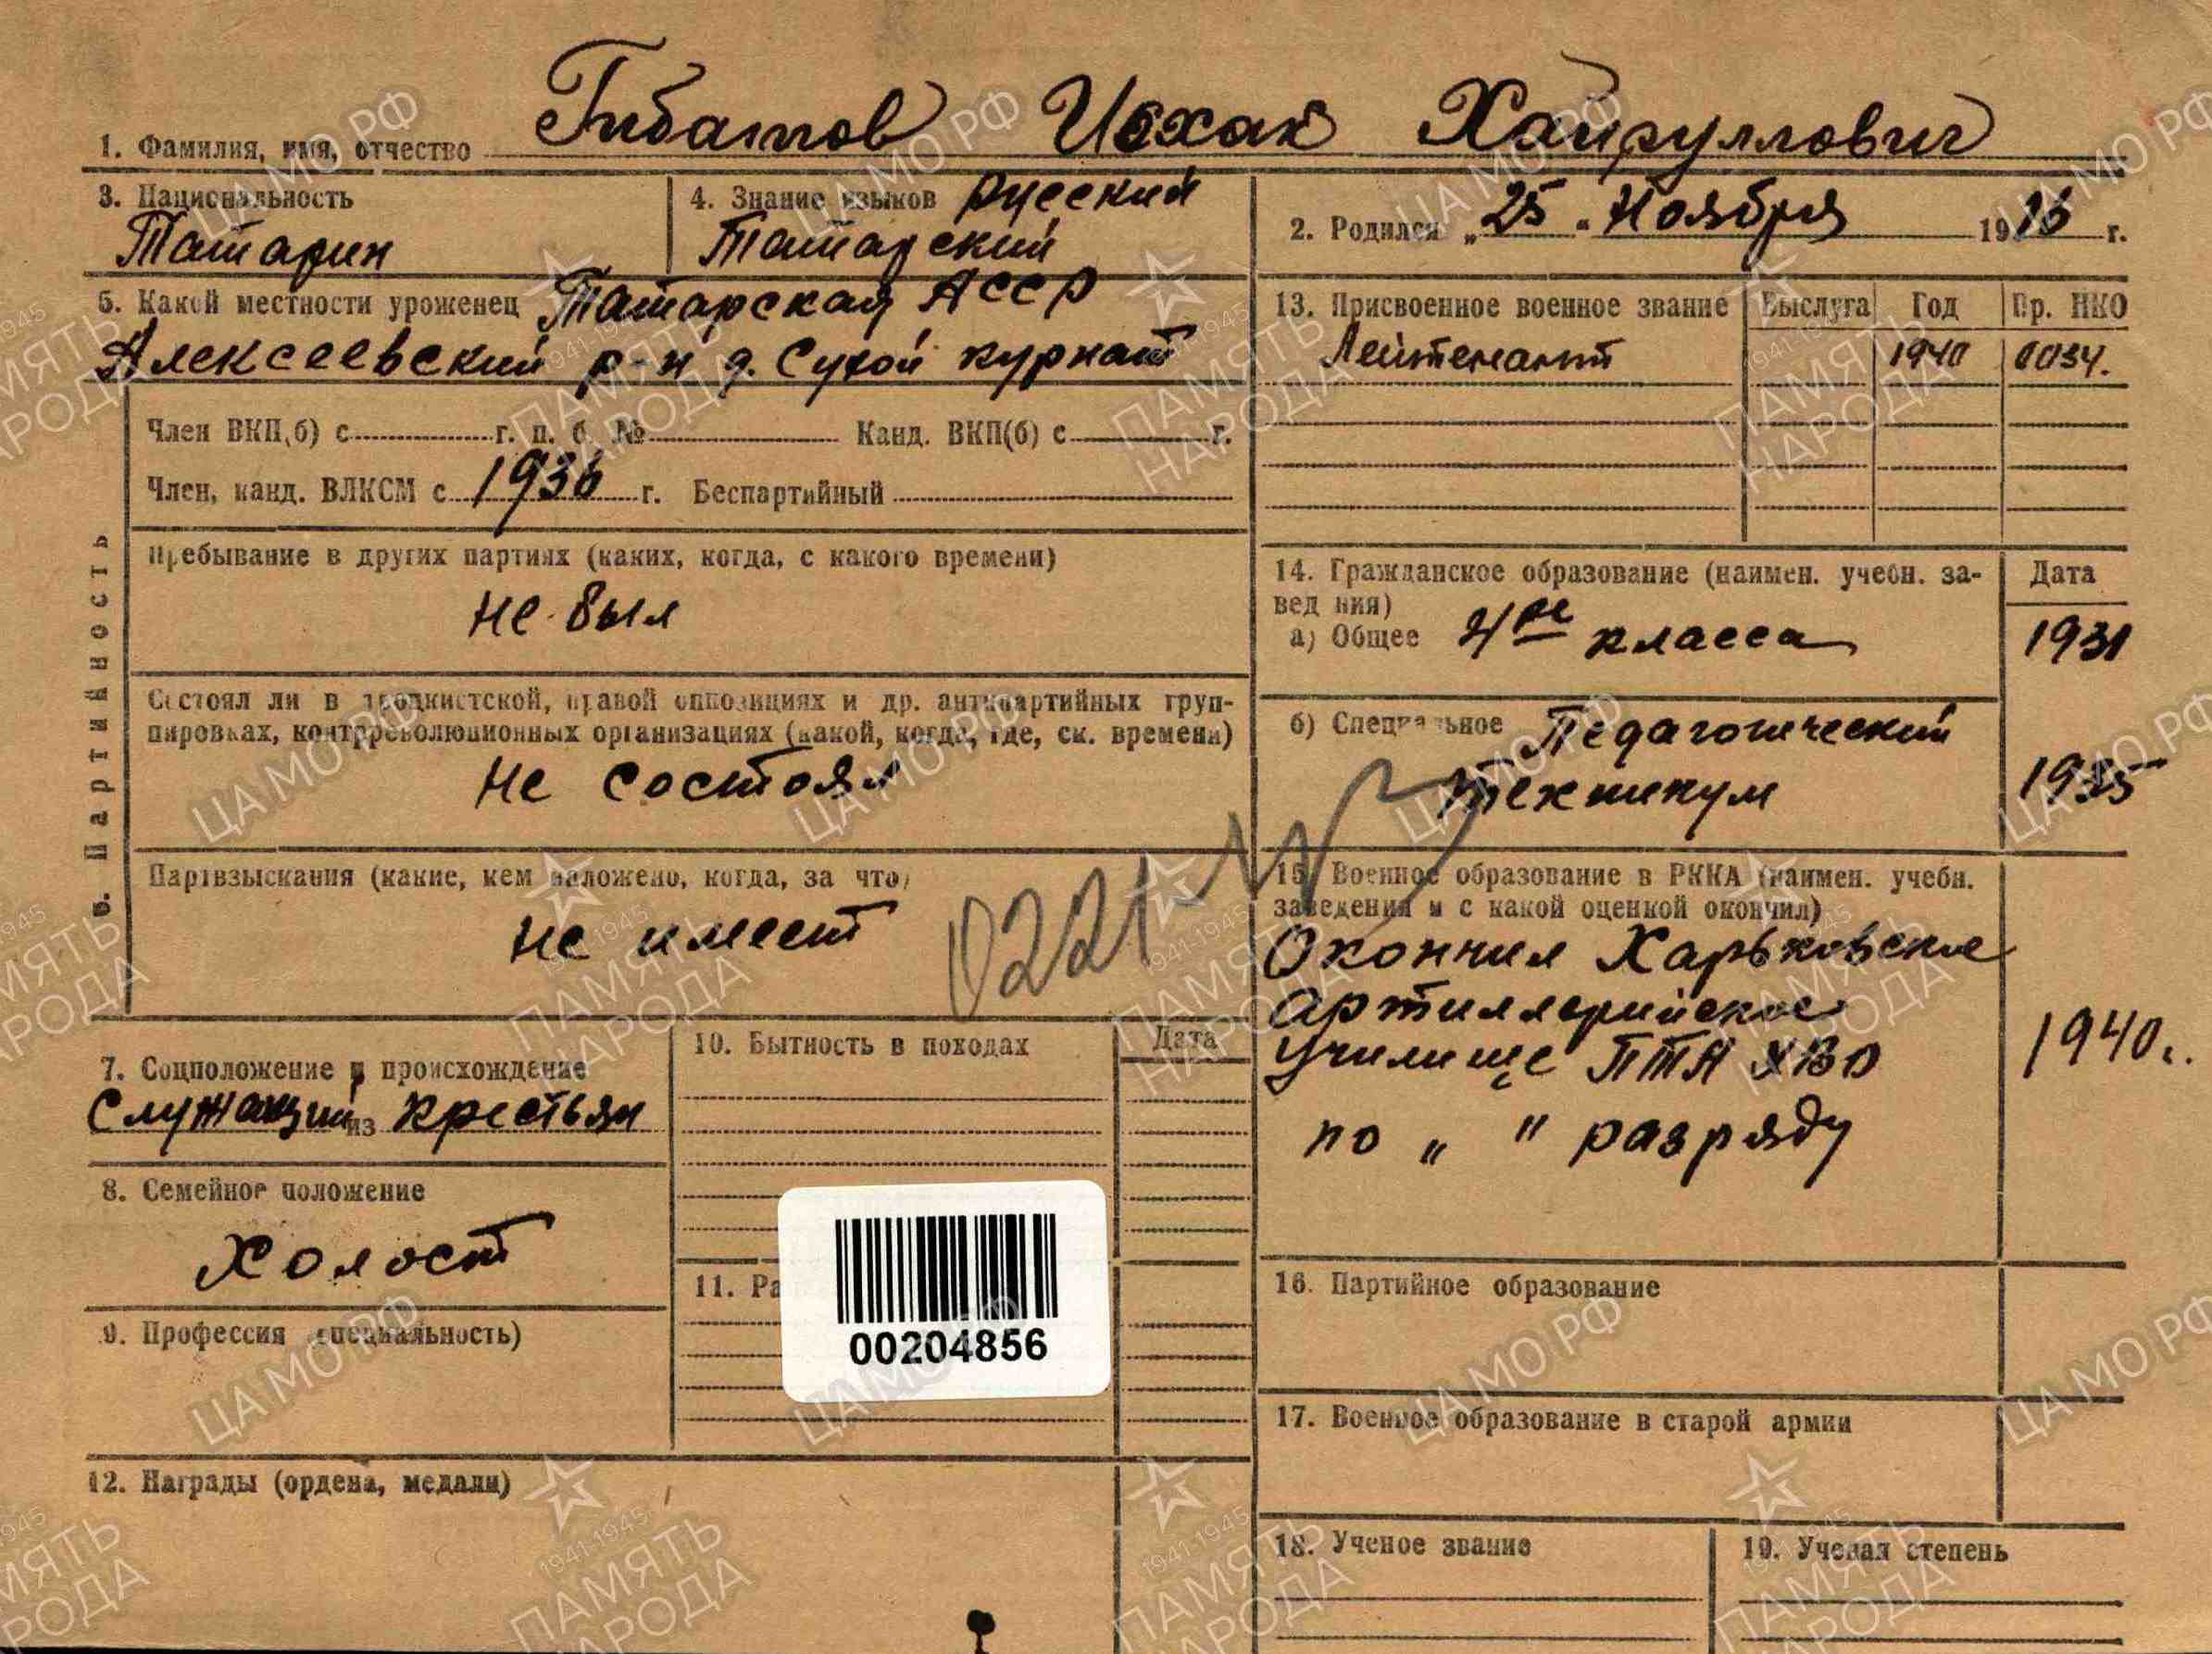 1. Фамилия, имя, отчество Гибатов Исхак Хайруллович
3. Национальность
Татарин
4. Знание языков русский
Татарский
2. Родился „25“ Ноября 1916 г.
5. Какой местности уроженец Татарская АССР
Алексеевский р-н д. Сухой курнат
13. Присвоенное военное звание Выслуга Год Пр. НКО
Лейтенант 1940 0034.
6. Партийность
Член ВКП(б) с г. п. б. № Канд. ВКП(б) с г.
Член, канд. ВЛКСМ с 1936 г. Беспартийный
Пребывание в других партиях (каких, когда, с какого времени)
не был
Состоял ли в троцкистской, правой оппозициях и др. антипартийных груп-
пировках, контрреволюционных организациях (какой, когда, где, ск. времени)
не состоял
Партвзыскания (какие, кем наложено, когда, за что)
не имеет
0221
14. Гражданское образование (наимен. учебн. за- Дата
ведения)
а) Общее 4ре класса 1931
б) Специальное Педагогический
техникум 1935
15. Военное образование в РККА (наимен. учебн.
заведения и с какой оценкой окончил)
Окончил Харьковское
артиллерийское
училище ПТА ХВО 1940г.
по „ " разряду
7. Соцположение и происхождение
Служащий из крестьян
8. Семейное положение
Холост
9. Профессия (специальность)
10. Бытность в походах Дата
11. Ра
00204856
12. Награды (ордена, медали)
16. Партийное образование
17. Военное образование в старой армии
18. Ученое звание
19. Ученая степень
ЦА МО РФ
1941-1945
ПАМЯТЬ
НАРОДА